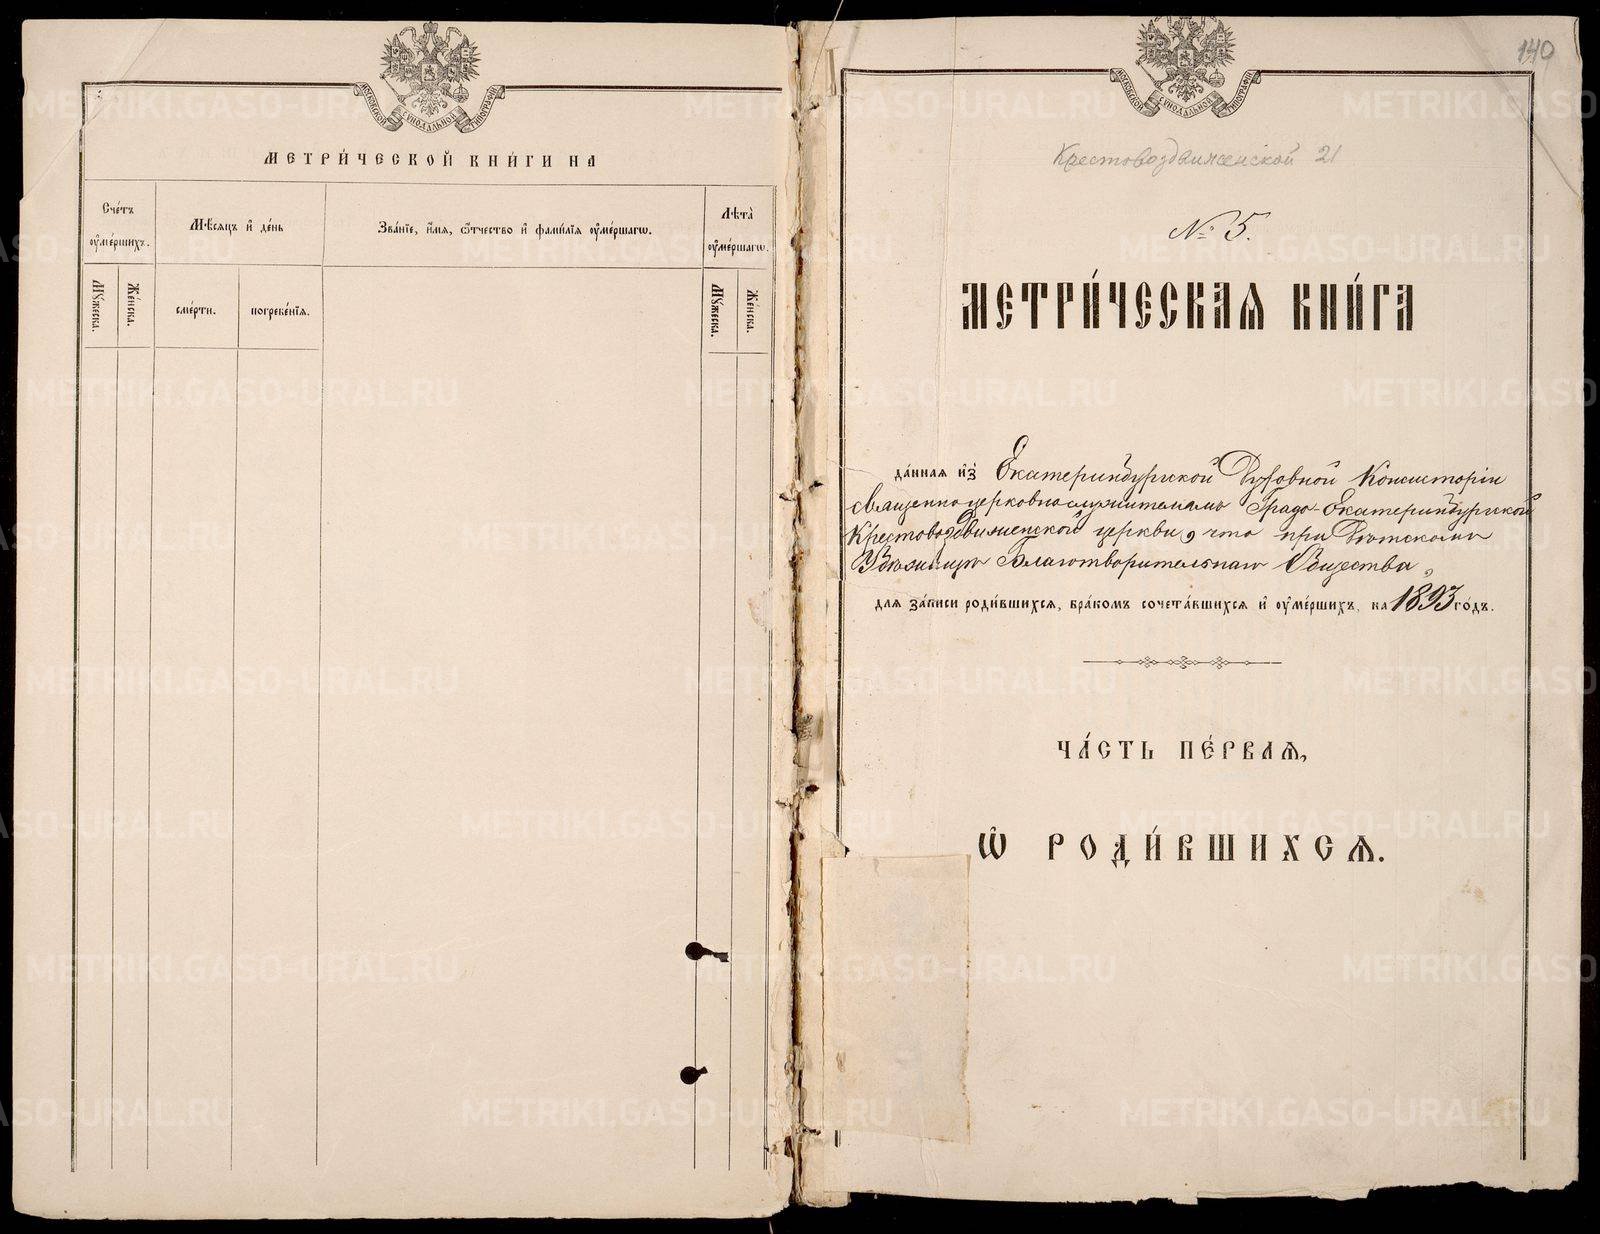 МОСКОВСКОЙ СѴНОДАЛЬНОЙ ТИПОГРАФІИ
МЕТРИ́ЧЕСКОЙ КНИ́ГИ НА
Сче́тъ ᲂу҆ме́ршихъ.
Мѣ́сѧцъ и҆ де́нь
Зва́нїе, и҆́мѧ, ѻ҆́тчество и҆ фами́лїѧ ᲂу҆ме́ршагѡ.
Лѣ́та ᲂу҆ме́ршагѡ.
Мꙋ́жеска.
Же́нска.
сме́рти.
погребе́нїѧ.
Мꙋ́жеска.
Же́нска.
140
МОСКОВСКОЙ СѴНОДАЛЬНОЙ ТИПОГРАФІИ
Крестовоздвиженской 21
№ 5.
МЕТРИ́ЧЕСКАѦ КНИ́ГА
да́ннаѧ и҆з̾ Екатеринбургской Духовной Консисторіи
священно церковнослужителямъ Градо-Екатеринбургской
Крестовоздвиженской церкви, что при Дѣтскомъ
Убѣжищѣ Благотворительнаго Общества,
для за́писи роди́вшихсѧ, бра́комъ сочета́вшихсѧ и҆ ᲂу҆ме́ршихъ, на 1893 го́дъ.
ЧА́СТЬ ПЕ́РВАѦ,
Ѽ РОДИ́ВШИХСѦ.
METRIKI.GASO-URAL.RU